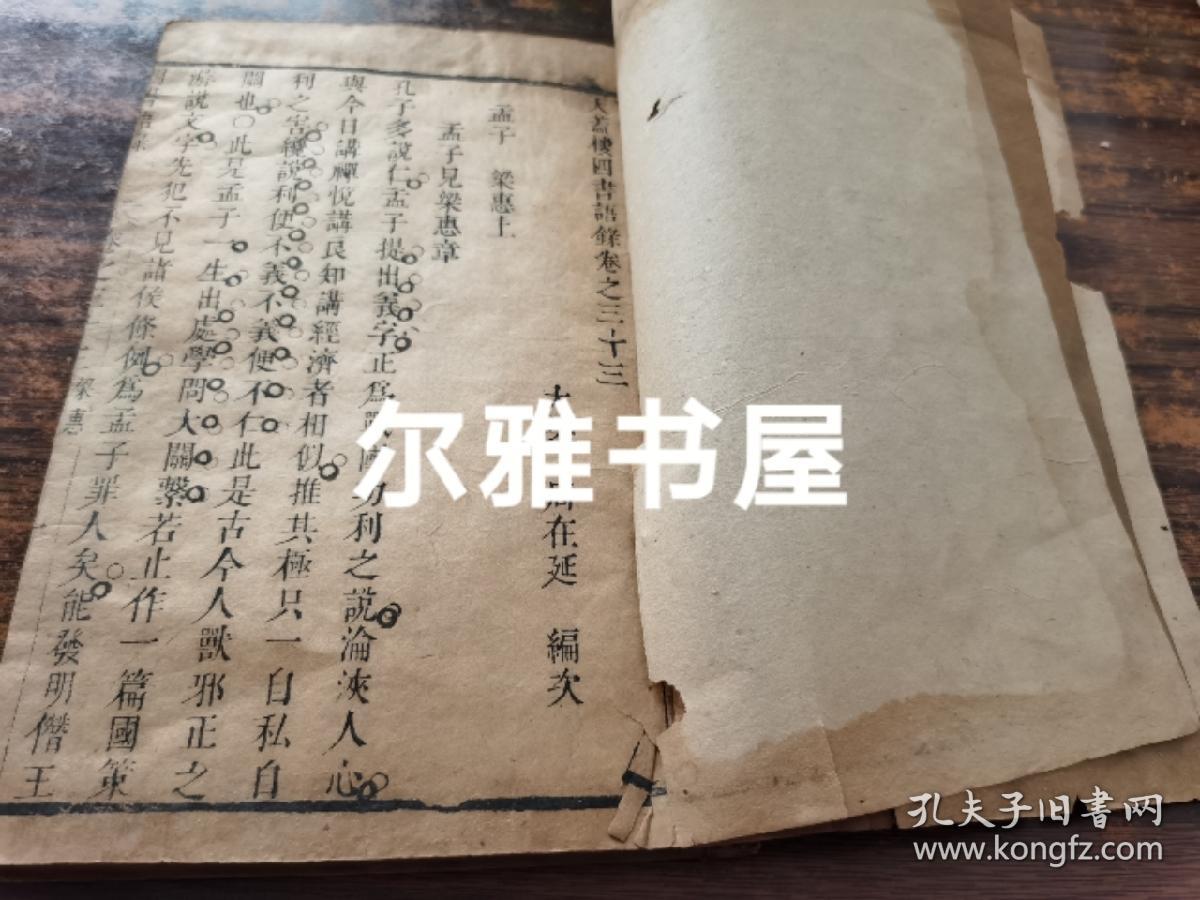 天蓋樓四書語錄卷之三十三
周在延　編次
孟子　梁惠上
孟子見梁惠章
孔子多說仁孟子提出義字正爲戰國功利之說淪浹人心
與今日講禪悅講良知講經濟者相似推其極只一自私自
利之害纔說利便不義不義便不仁此是古今人獸邪正之
關也○此見孟子一生出處學問大關繫若止作一篇國策
游說文字先犯不見諸侯條例爲孟子罪人矣能發明僭王
四書語錄
梁惠
尔雅书屋
孔夫子旧书网
www.kongfz.com